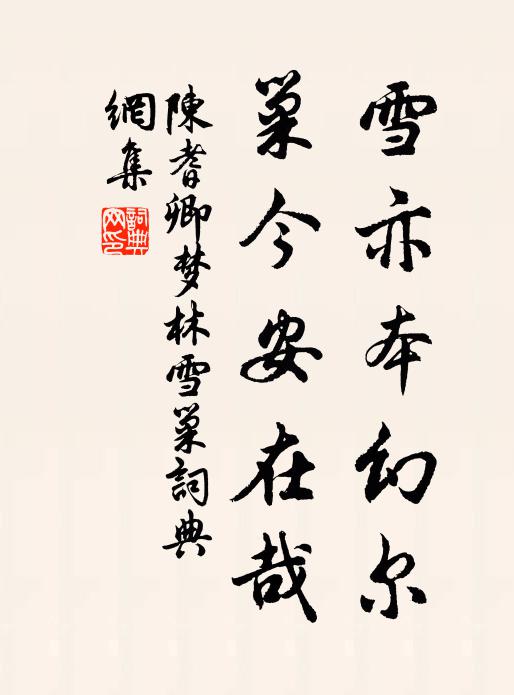 雪亦本幻尔
巢今安在哉
陳耆卿梦林雪巢詞典
網集
詞典
网印